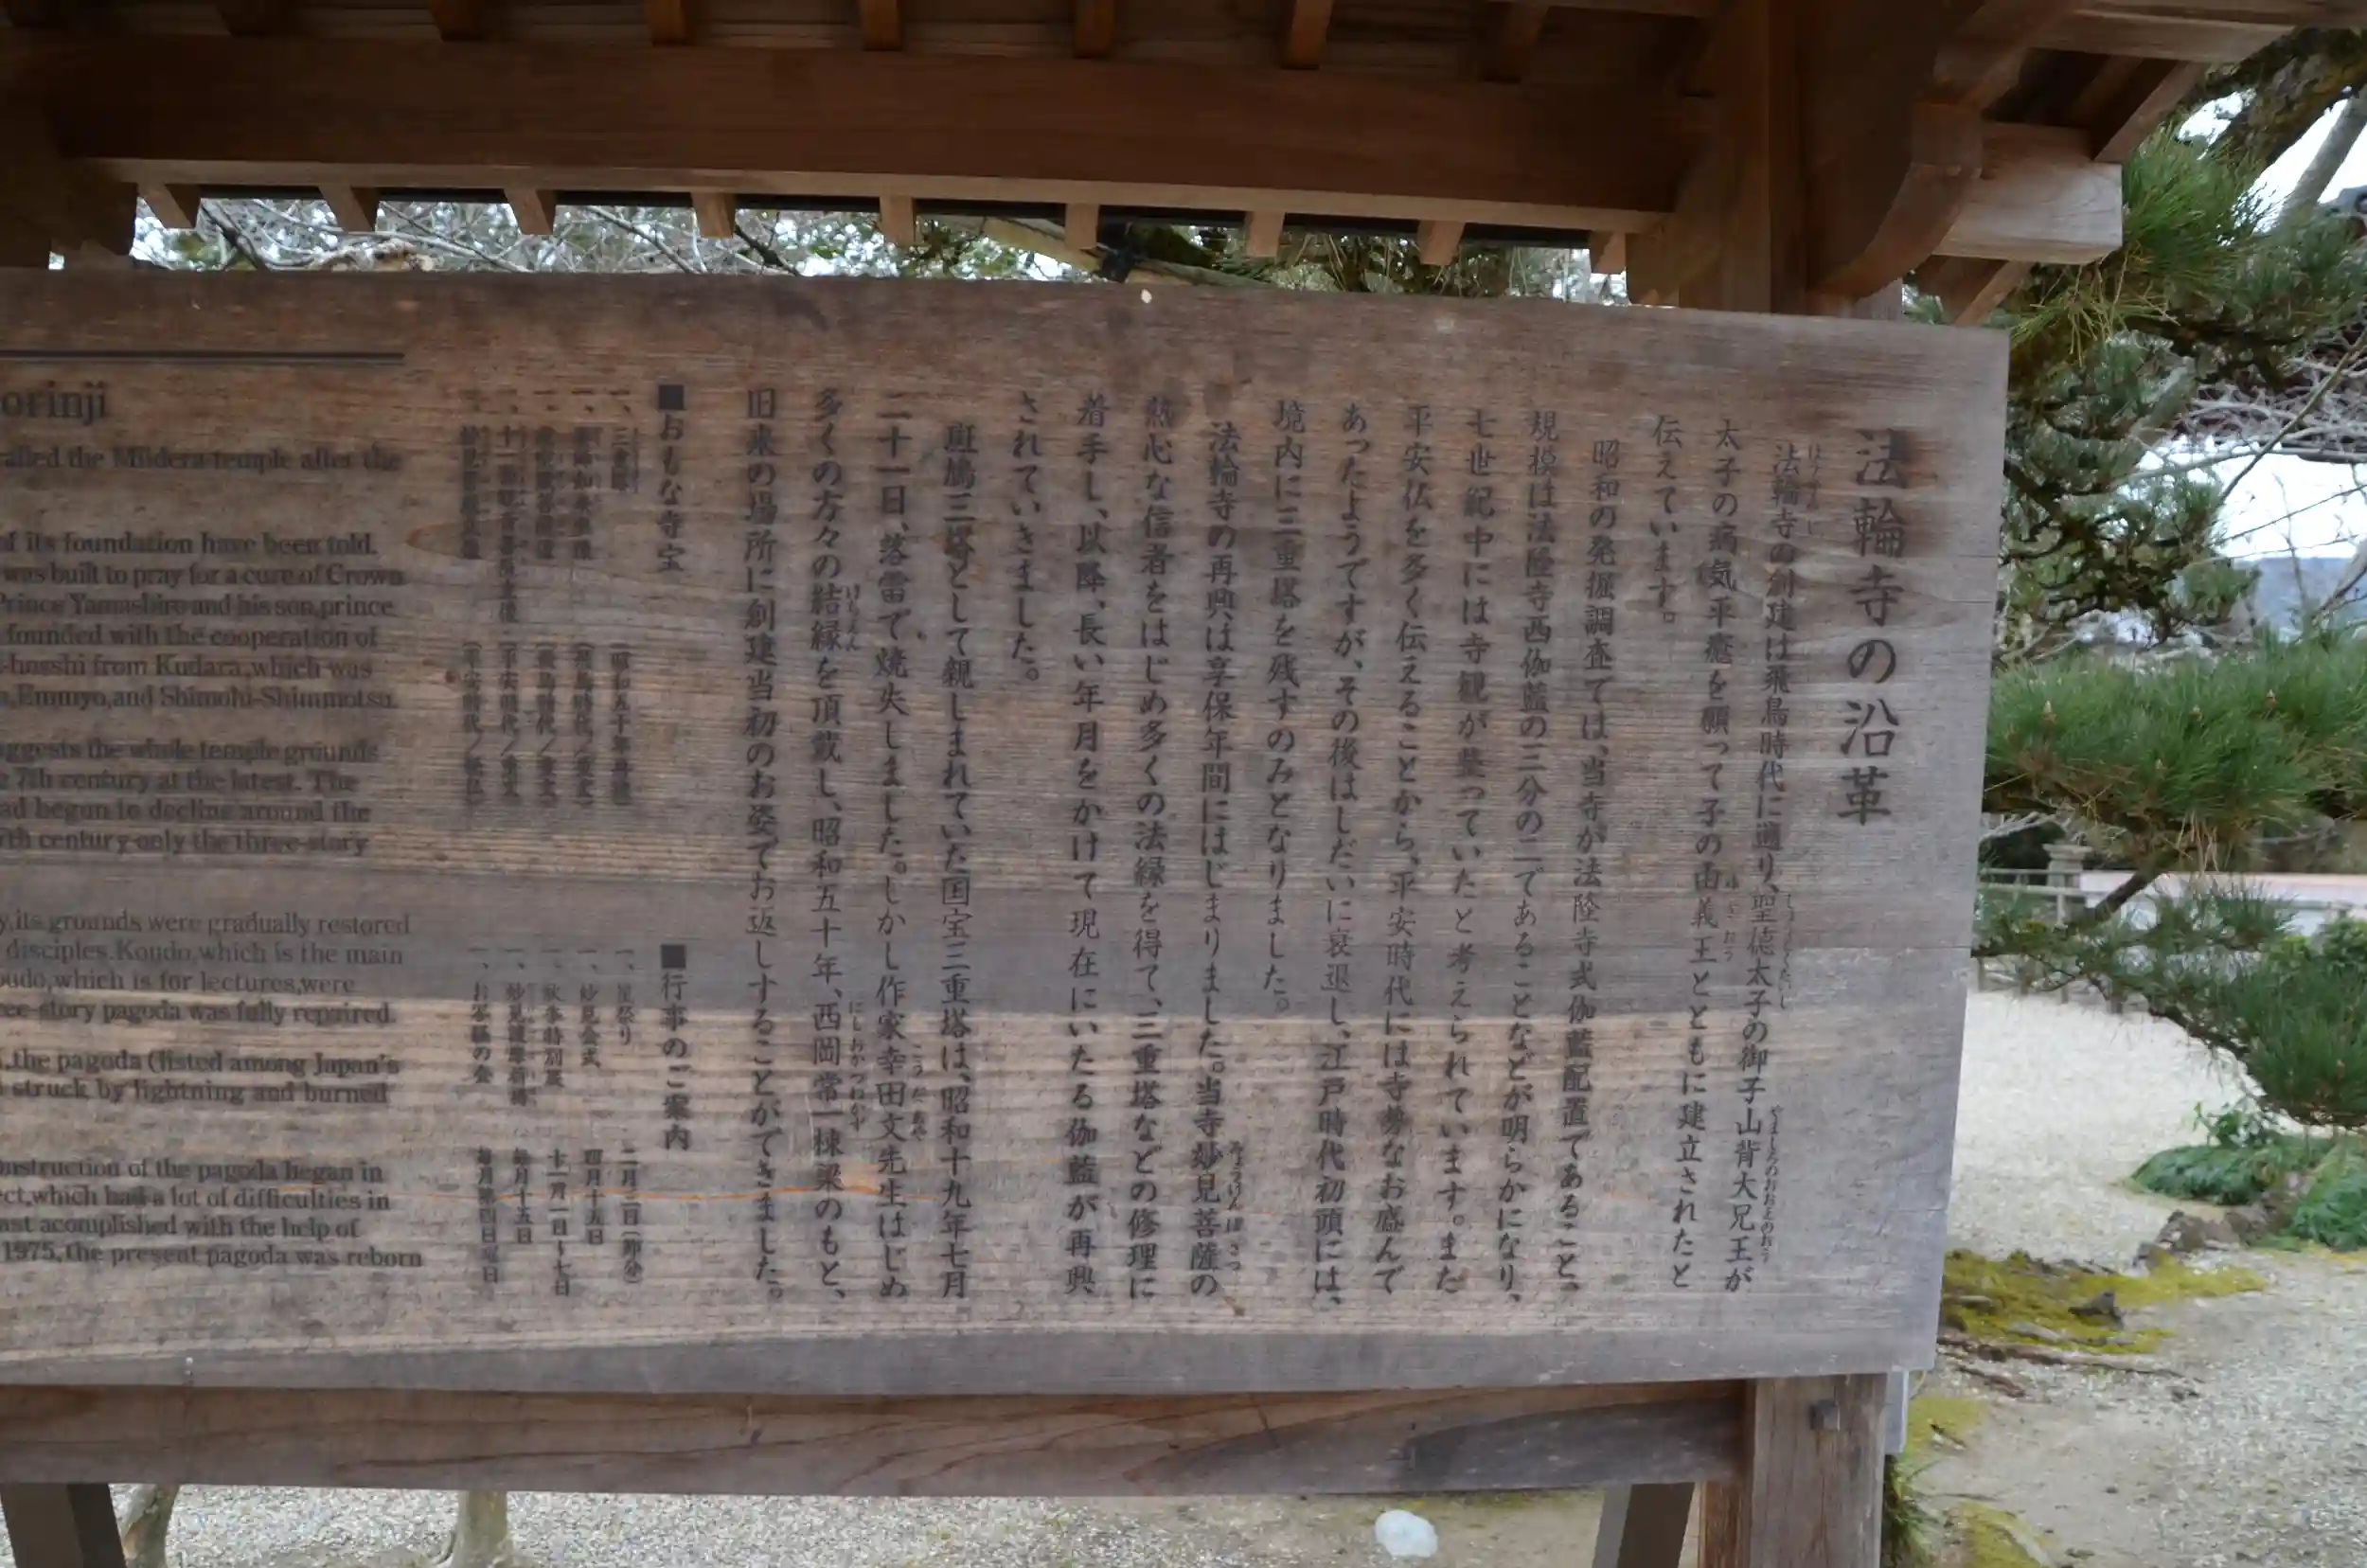 法輪寺の沿革
法輪寺の創建は飛鳥時代に遡り、聖徳太子の御子山背大兄王が
太子の病気平癒を願って子の由義王とともに建立されたと
伝えています。
昭和の発掘調査では、当寺が法隆寺式伽藍配置であること、
規模は法隆寺西伽藍の三分の二であることなどが明らかになり、
七世紀中には寺観が整っていたと考えられています。また
平安仏を多く伝えることから、平安時代には寺勢なお盛んで
あったようですが、その後はしだいに衰退し、江戸時代初頭には、
境内に三重塔を残すのみとなりました。
法輪寺の再興は享保年間にはじまりました。当寺妙見菩薩の
熱心な信者をはじめ多くの法縁を得て、三重塔などの修理に
着手し、以降、長い年月をかけて現在にいたる伽藍が再興
されていきました。
斑鳩三塔として親しまれていた国宝三重塔は、昭和十九年七月
二十一日、落雷で焼失しました。しかし作家幸田文先生はじめ
多くの方々の結縁を頂戴し、昭和五十年、西岡常一棟梁のもと、
旧来の場所に創建当初のお姿でお返しすることができました。
■おもな寺宝
一、三重塔 (昭和五十年再建)
如来坐像 (飛鳥時代/重文)
(飛鳥時代/重文)
十一面観音菩薩立像 (平安時代/重文)
(平安時代/
■行事のご案内
一、星祭り 二月三日(節分)
一、妙見会式 四月十五日
一、秋季特別展 十一月一日〜七日
一、妙見護摩祈祷 毎月十五日
一、お写経の会 毎月第四日曜日
orinji
alled the Miidera temple after the
of its foundation have been told.
was built to pray for a cure of Crown
Prince Yamashiro and his son,prince
founded with the cooperation of
-hosshi from Kudara,which was
,Emmyo,and Shimohi-Shinmotsu.
ggests the whole temple grounds
7th century at the latest. The
ad begun to decline around the
7th century only the three-story
y,its grounds were gradually restored
disciples.Kondo,which is the main
oudo,which is for lectures,were
ree-story pagoda was fully repaired.
,the pagoda (listed among Japan's
struck by lightning and burned
onstruction of the pagoda began in
ect,which had a lot of difficulties in
ast acomplished with the help of
1975,the present pagoda was reborn